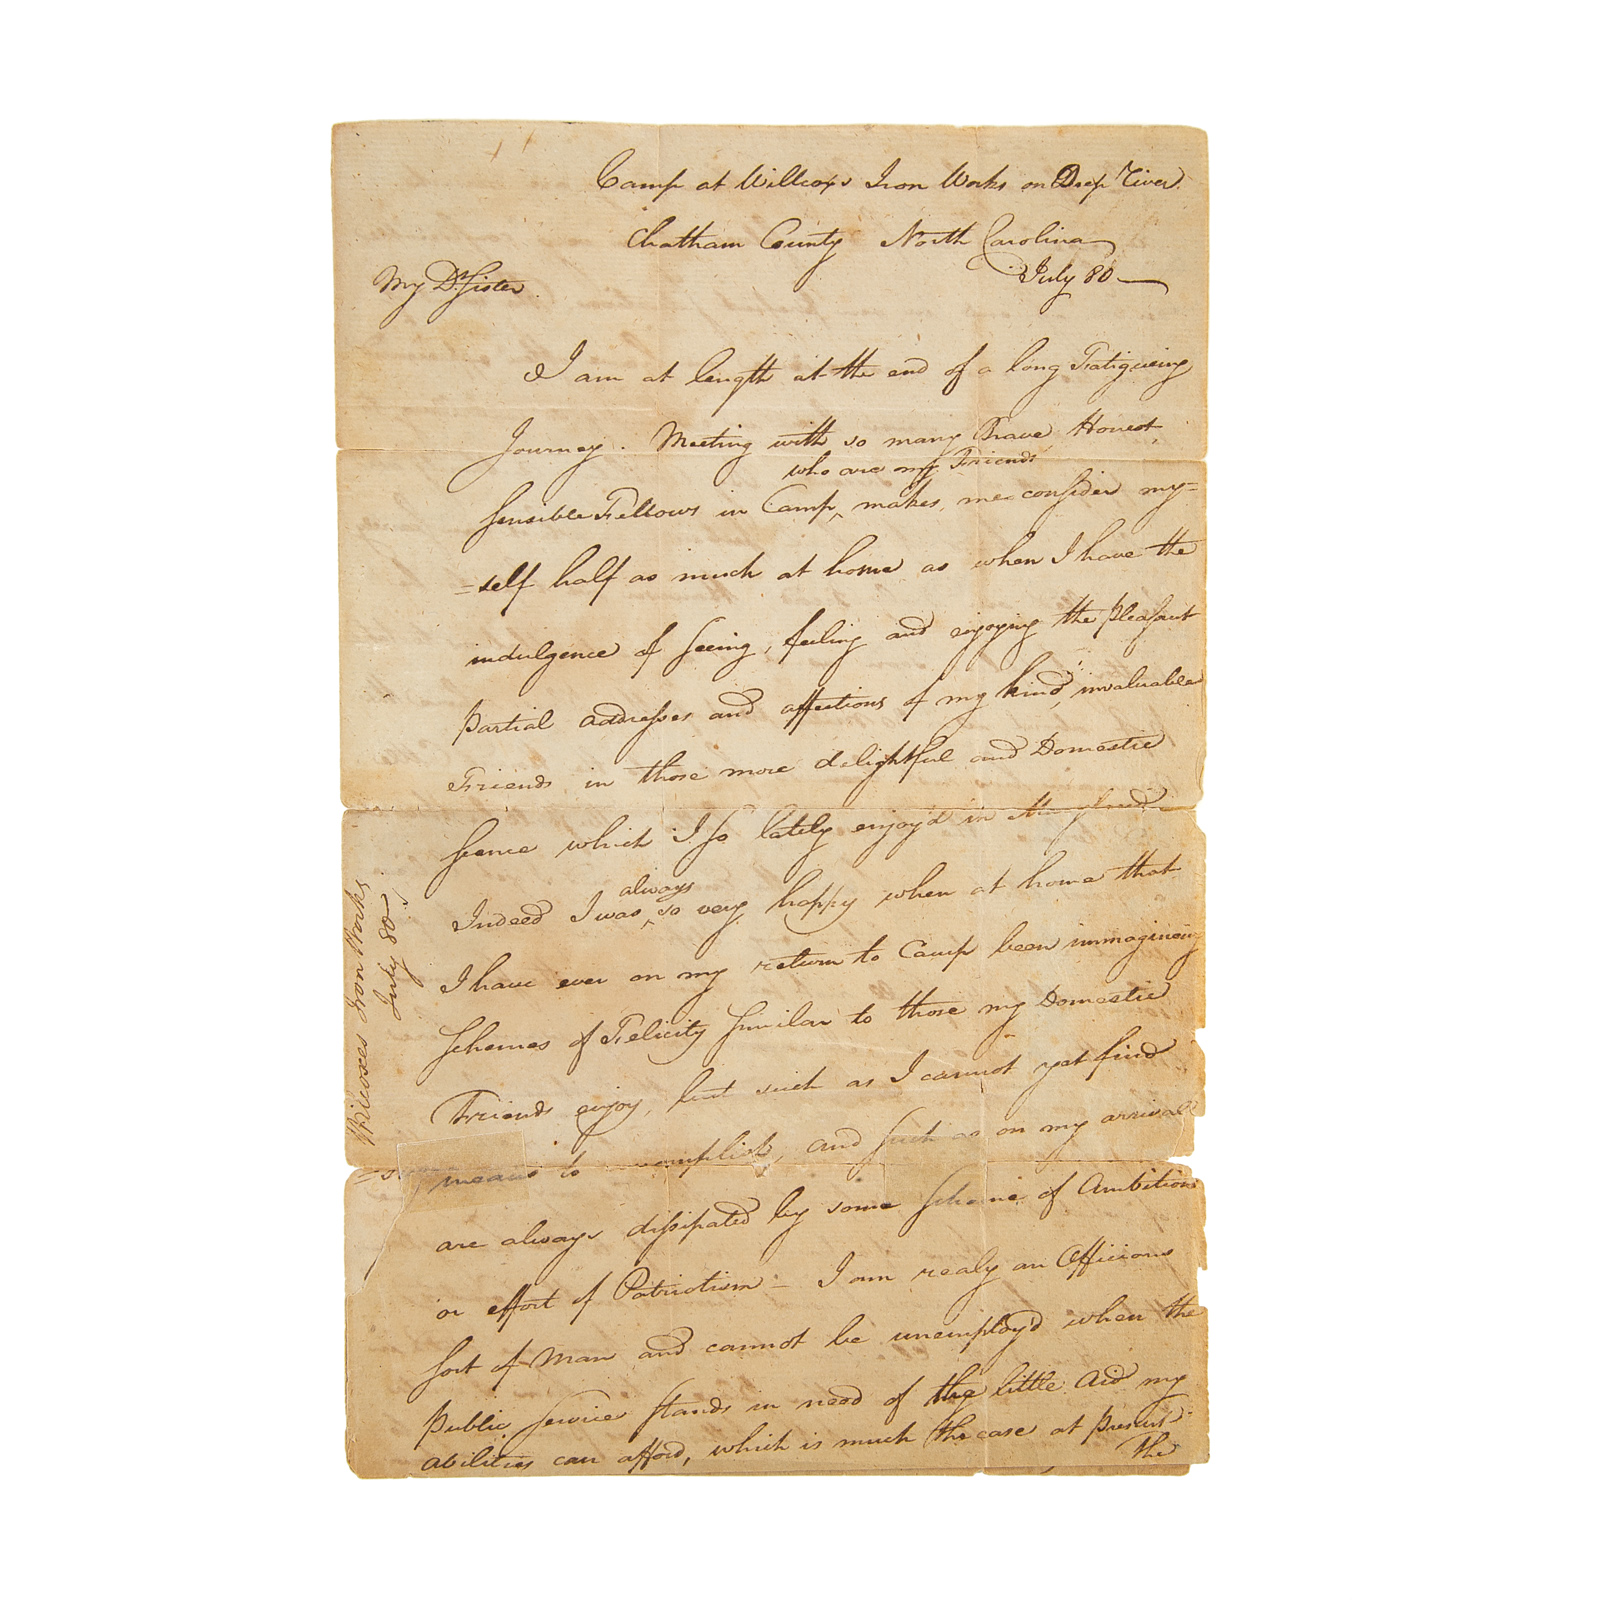 Camp at Willcoxs Iron Works on Deep River
Chatham County North Carolina
July 80
My Dr. Sister
I am at length at the end of a long Fatigueing
Journey. Meeting with so many Brave, Honest,
who are my Friends
Sensible Fellows in Camp ‸ makes, me consider my=
=self half as much at home as when I have the
indulgence of seeing, feeling and enjoying the pleasant
Partial addresses and affections of my kind, invaluable
Friends in those more delightful and Domestic
Scence which I so lately enjoy'd in Maryland
always
Indeed I was ‸ so very happy when at home that
I have ever on my return to Camp been immagineing
Schemes of Felicity Similar to those my Domestic
Friends enjoy, but such as I cannot yet find
means to and such as on my arrival
are always dissipated by some Scheme of Ambition
or effort of Patriotism - I am realy an Officious
sort of Man and cannot be unemploy'd when the
Public Service stands in need of the little Aid my
abilities can afford, which is much the case at present
The
Wilcoxes Iron Works
July 80